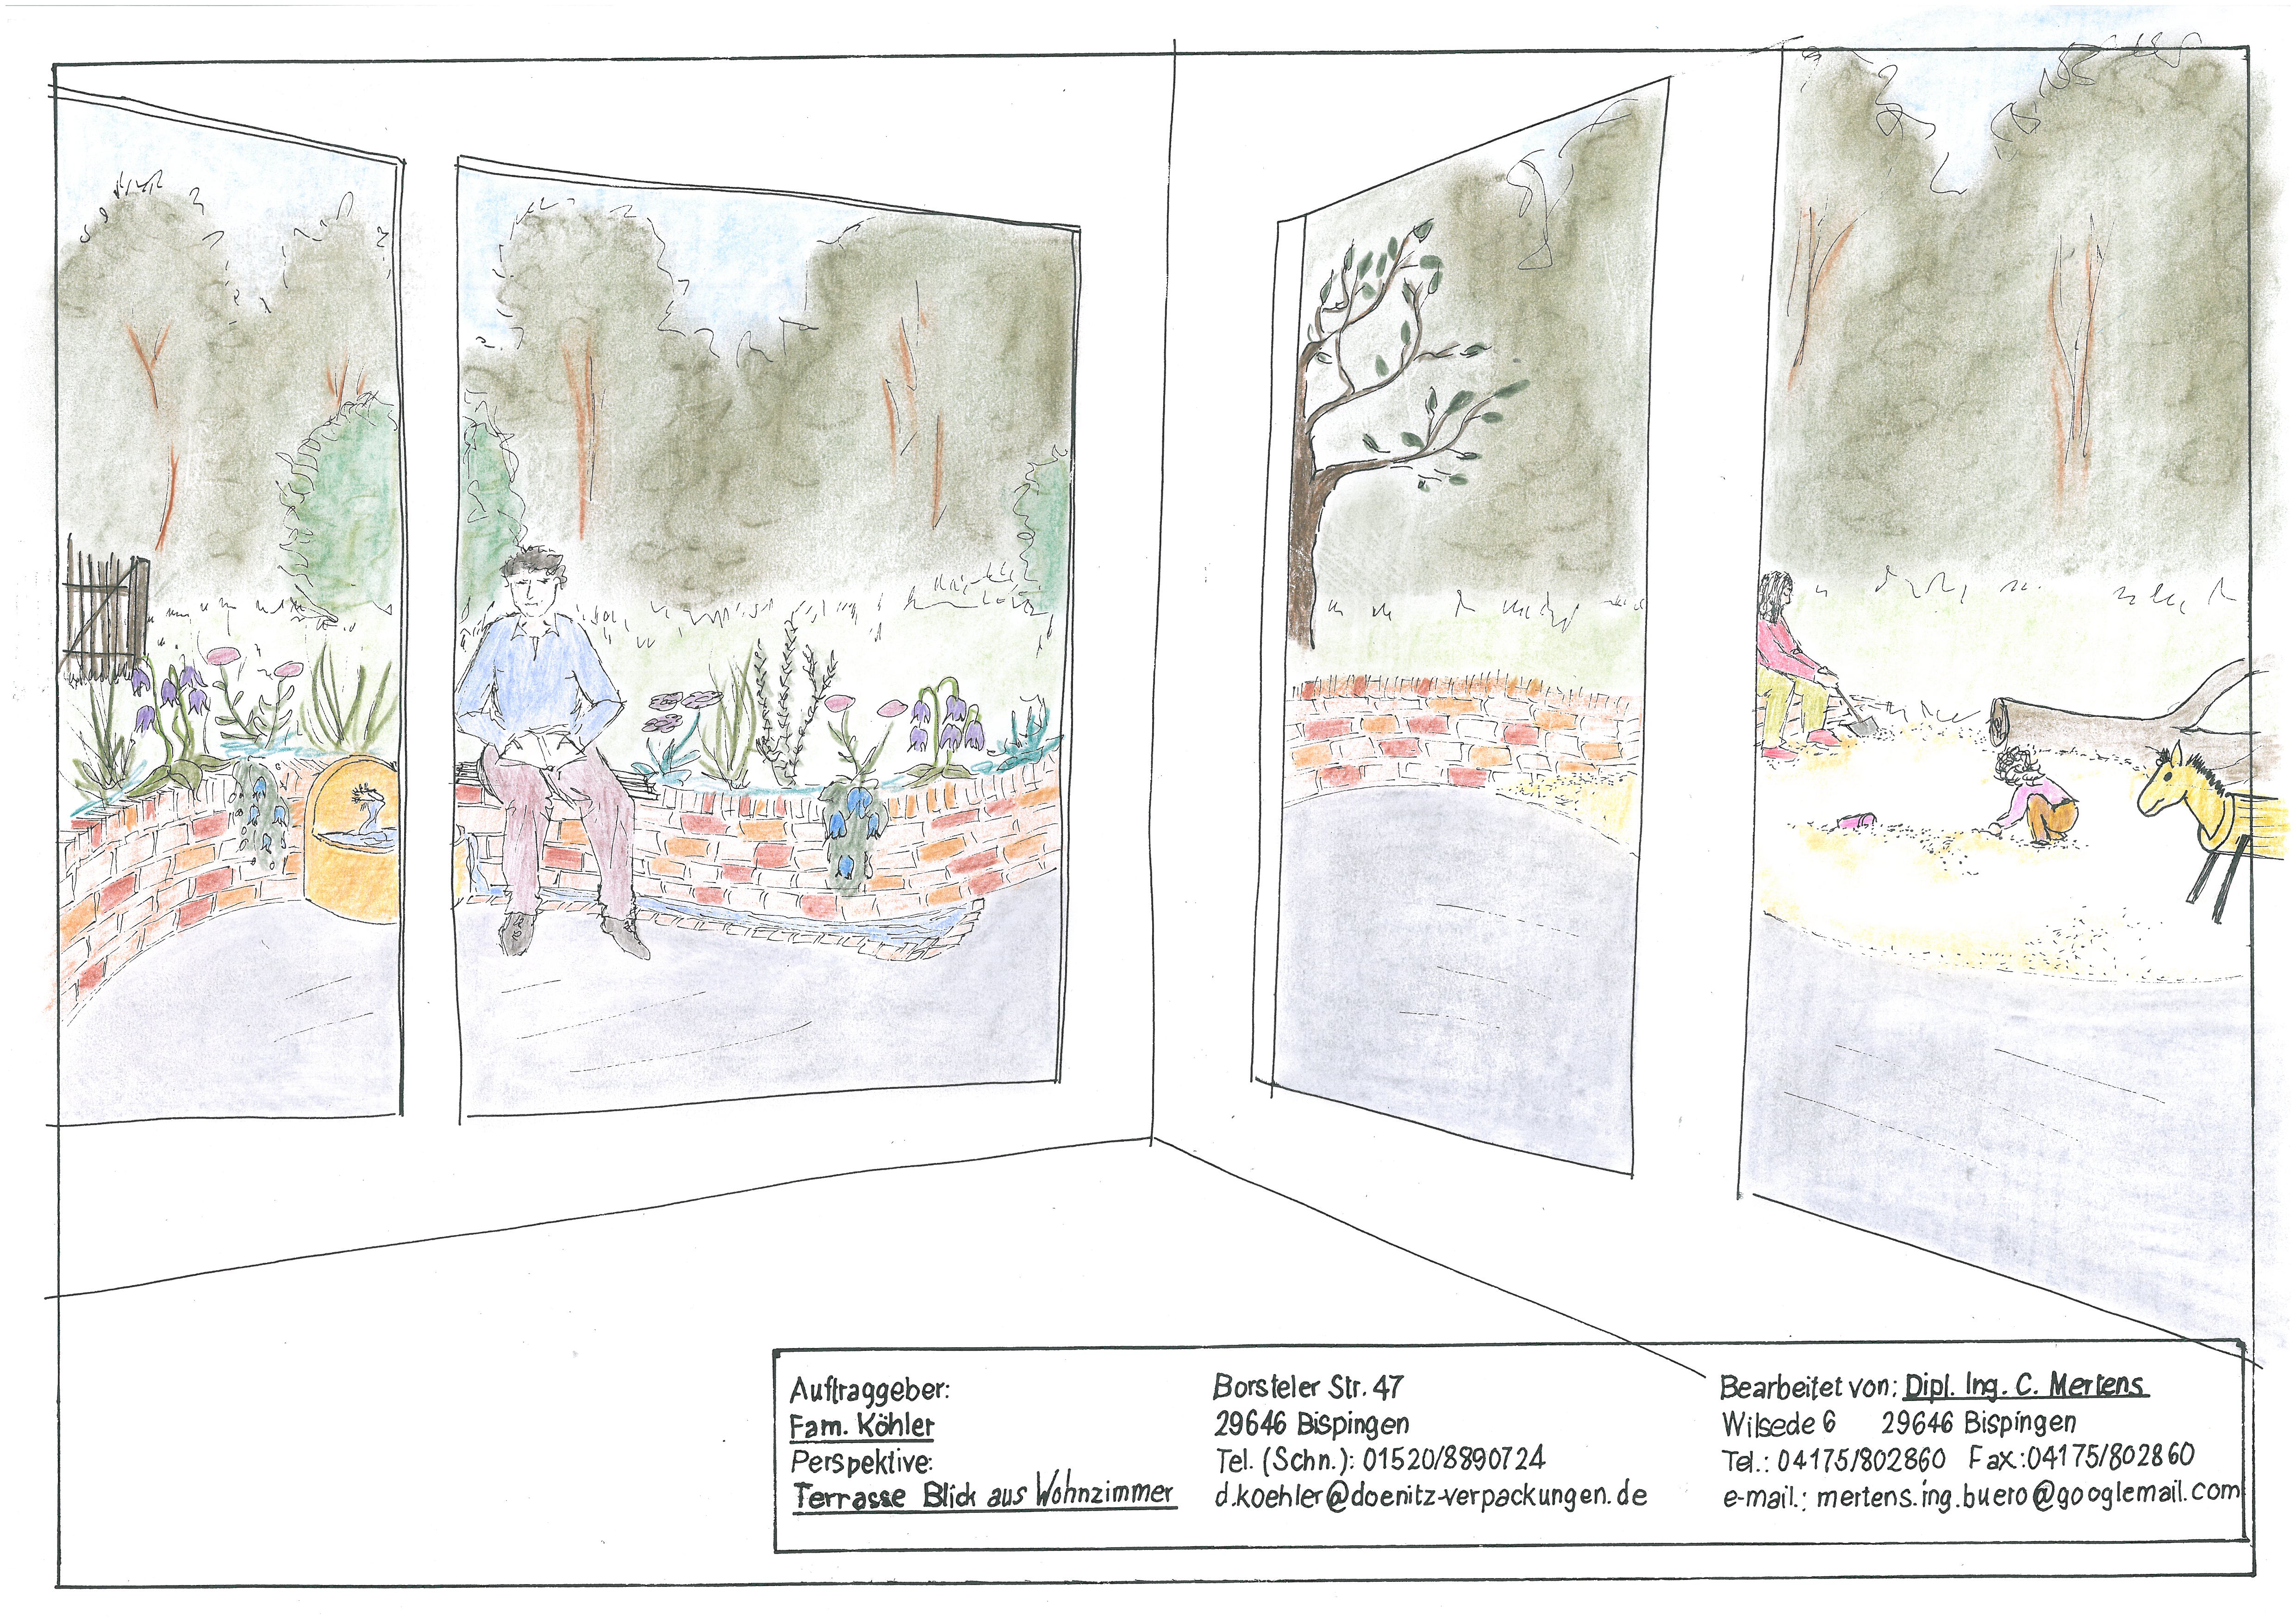 Auftraggeber:
Fam. Köhler
Perspektive:
Terrasse Blick aus Wohnzimmer
Borsteler Str. 47
29646 Bispingen
Tel. (Schn.): 01520/8890724
d.koehler@doenitz-verpackungen.de
Bearbeitet von: Dipl. Ing. C. Mertens
Wilsede 6 29646 Bispingen
Tel.: 04175/802860 Fax: 04175/802860
e-mail.: mertens.ing.buero@googlemail.com